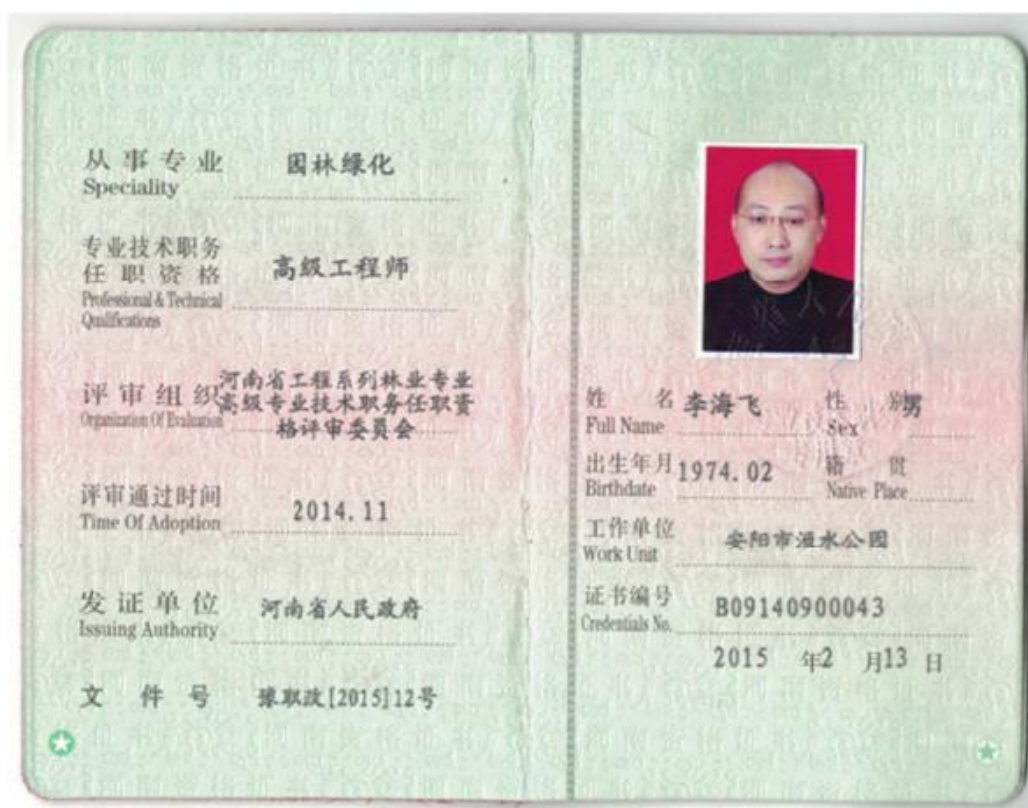 从事专业 园林绿化
Speciality
专业技术职务
任职资格 高级工程师
Professional & Technical
Qualifications
河南省工程系列林业专业
评审组织 高级专业技术职务任职资
Organization Of Evaluation 格评审委员会
评审通过时间 2014.11
Time Of Adoption
发证单位 河南省人民政府
Issuing Authority
文件号 豫职改[2015]12号
姓名 李海飞 性别 男
Full Name Sex
出生年月 1974.02 籍贯
Birthdate Native Place
工作单位 安阳市洹水公园
Work Unit
证书编号 B09140900043
Credentials No.
2015 年2 月13 日